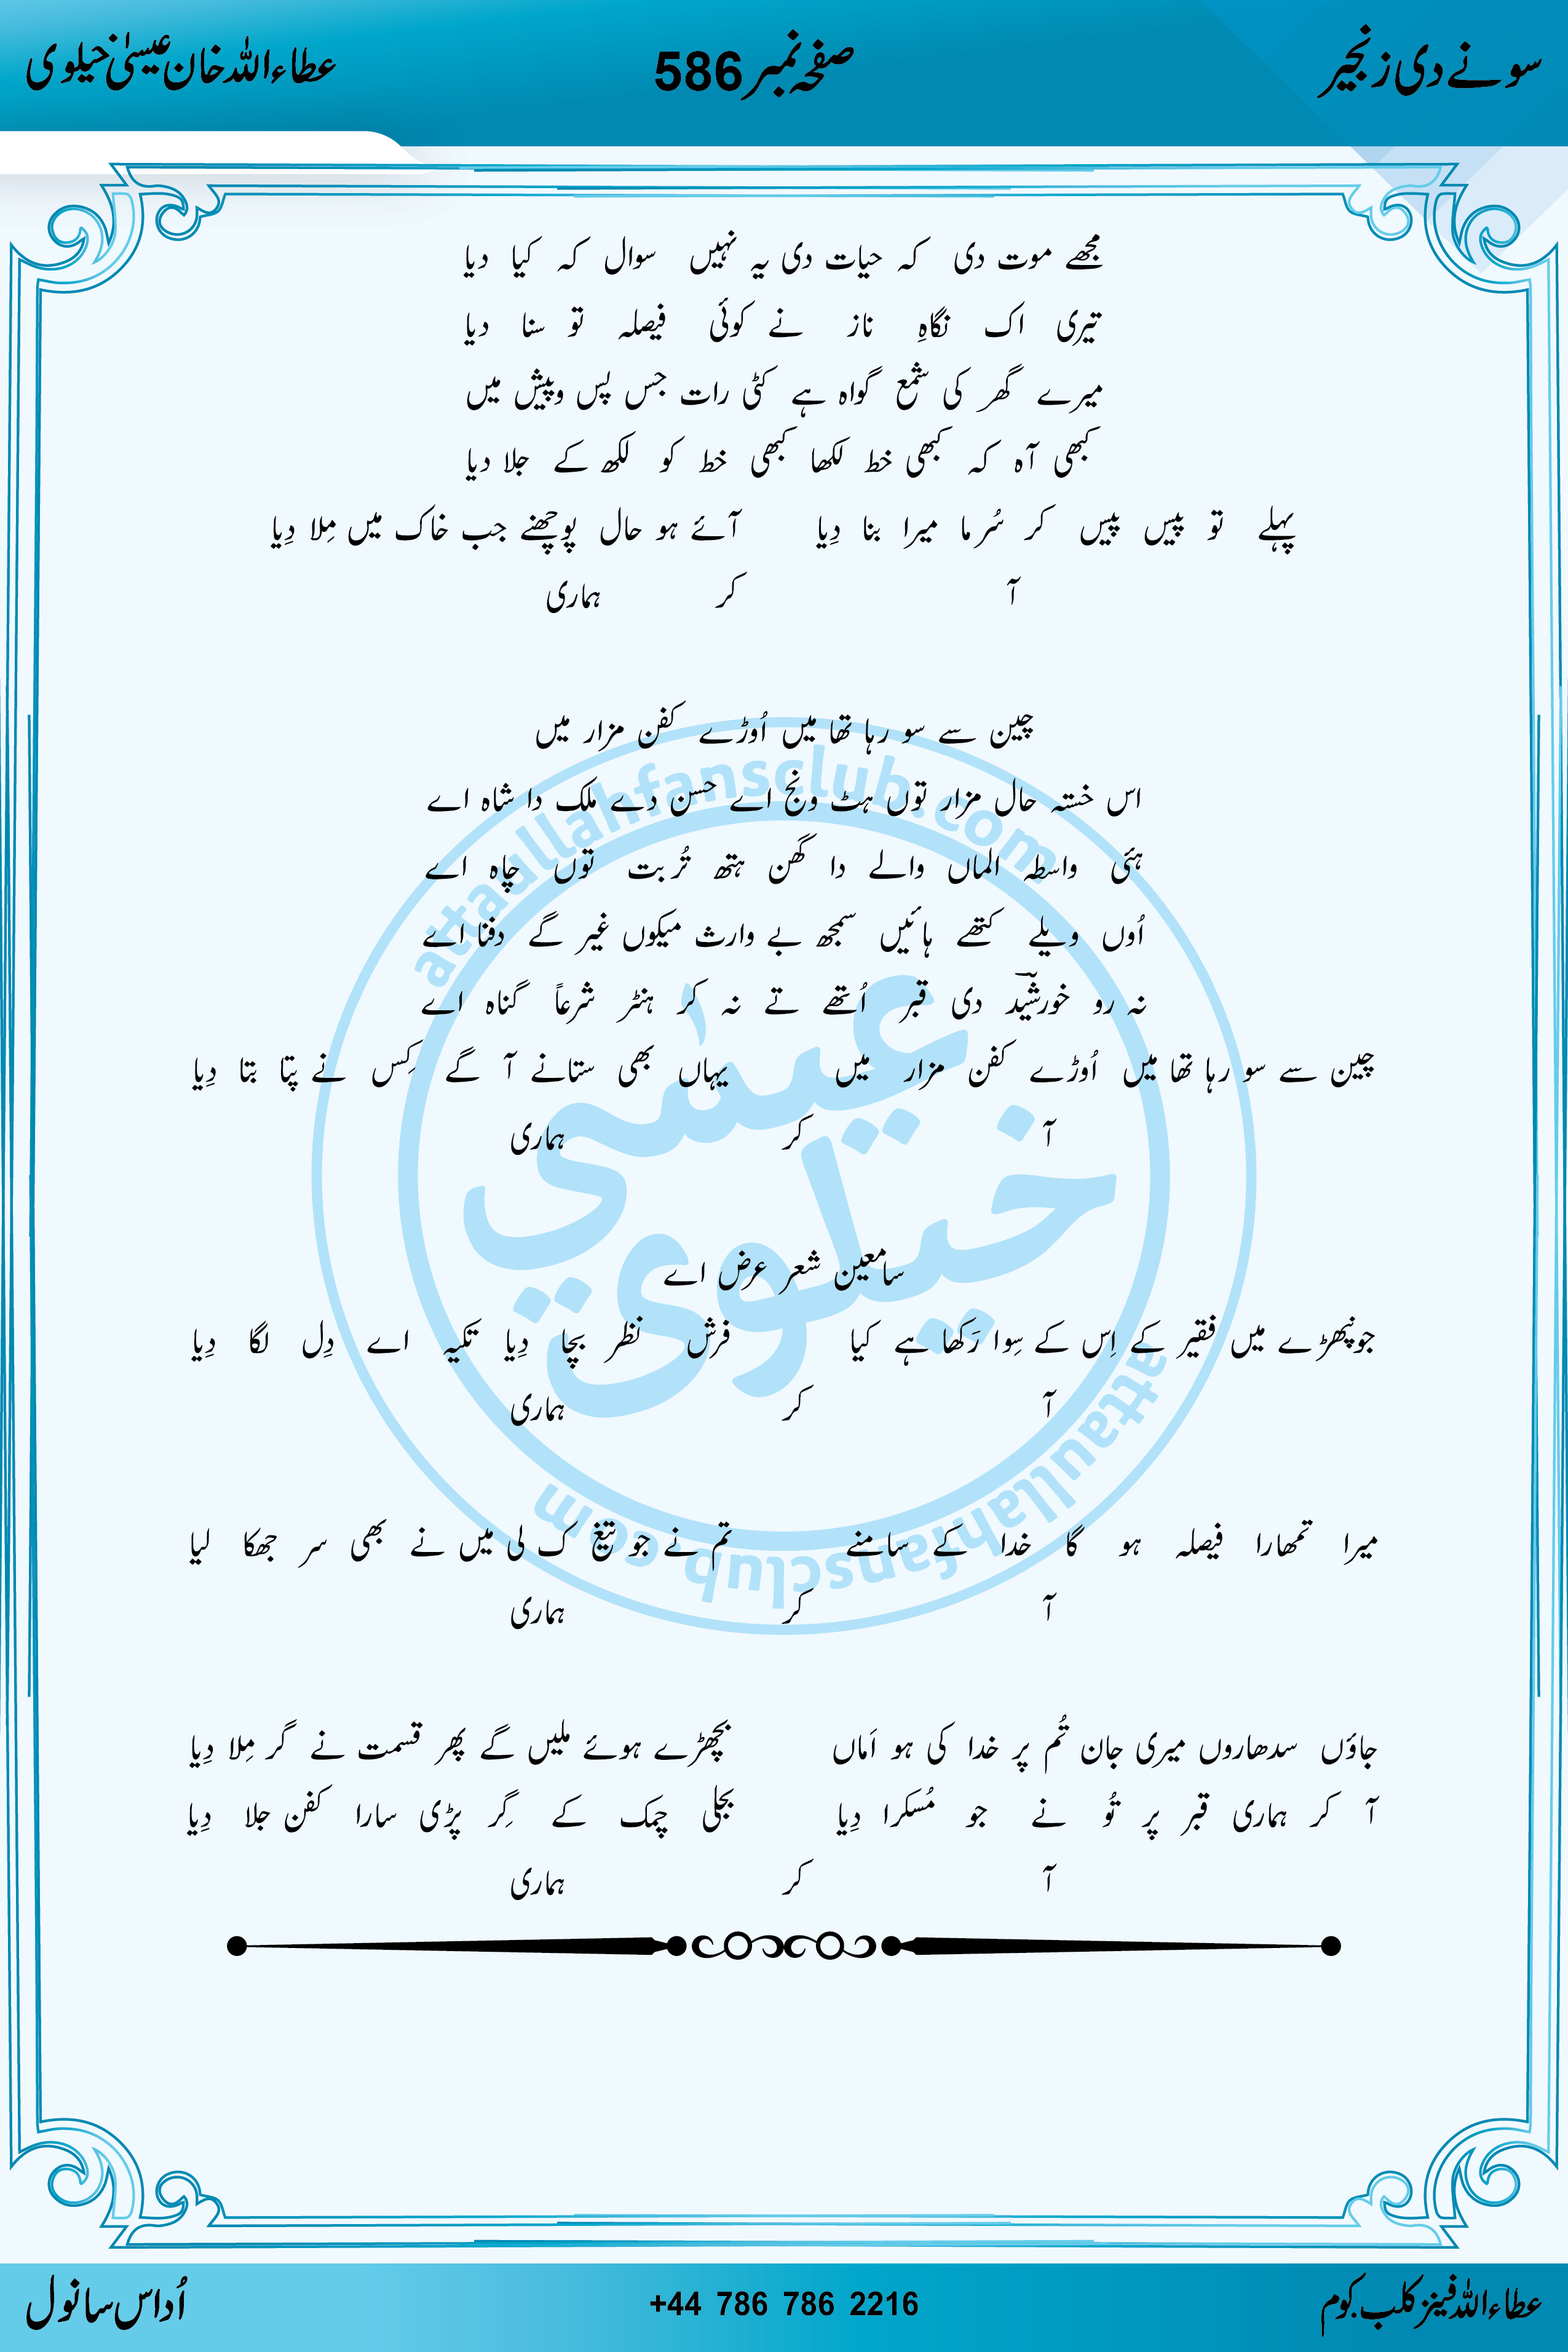 سونے دی زنجیر صفحہ نمبر 586 عطاءاللہ خان عیسیٰ خیلوی
مجھے موت دی کہ حیات دی یہ نہیں سوال کہ کیا دیا
تیری اک نگاہِ ناز نے کوئی فیصلہ تو سنا دیا
میرے گھر کی شمع گواہ ہے کٹی رات جس پس وپیش میں
کبھی آہ کہ کبھی خط لکھا کبھی خط کو لکھ کے جلا دیا
پہلے تو پیس پیس کر سُرما میرا بنا دِیا آئے ہو حال پوچھنے جب خاک میں مِلا دِیا
آ کر ہماری
چین سے سو رہا تھا میں اُوڑے کفن مزار میں
اس خستہ حال مزار توں ہٹ ونج اے حسن دے ملک دا شاہ اے
ہئی واسطہ الماں والے دا گھن ہتھ تُربت توں چاہ اے
اُوں ویلے کتھے ہائیں سمجھ بے وارث میکوں غیر گے دفنا اے
نہ رو خورشید دی قبر اُتھے تے نہ کر ہنڑ شرعاً گناہ اے
چین سے سو رہا تھا میں اُوڑے کفن مزار میں یہاں بھی ستانے آ گے کِس نے پتا بتا دِیا
آ کر ہماری
سامعین شعر عرض اے
جونپھڑے میں فقیر کے اِس کے سِوا رَکھا ہے کیا فرش نظر بچا دِیا تکیہ اے دِل لگا دِیا
آ کر ہماری
میرا تمھارا فیصلہ ہو گا خدا کے سامنے تم نے جو تیغ ک لی میں نے بھی سر جھکا لیا
آ کر ہماری
جاؤں سدھاروں میری جان تُم پر خدا کی ہو اَماں بچھڑے ہوئے ملیں گے پھر قسمت نے گر مِلا دِیا
آ کر ہماری قبر پر تُو نے جو مُسکرا دِیا بجلی چمک کے گِر پڑی سارا کفن جلا دِیا
آ کر ہماری
attaullahfansclub.com
عیسٰی
خیلوی
attaullahfansclub.com
عطاءاللہ فینز کلب.کوم +44 786 786 2216 اُداس سانول